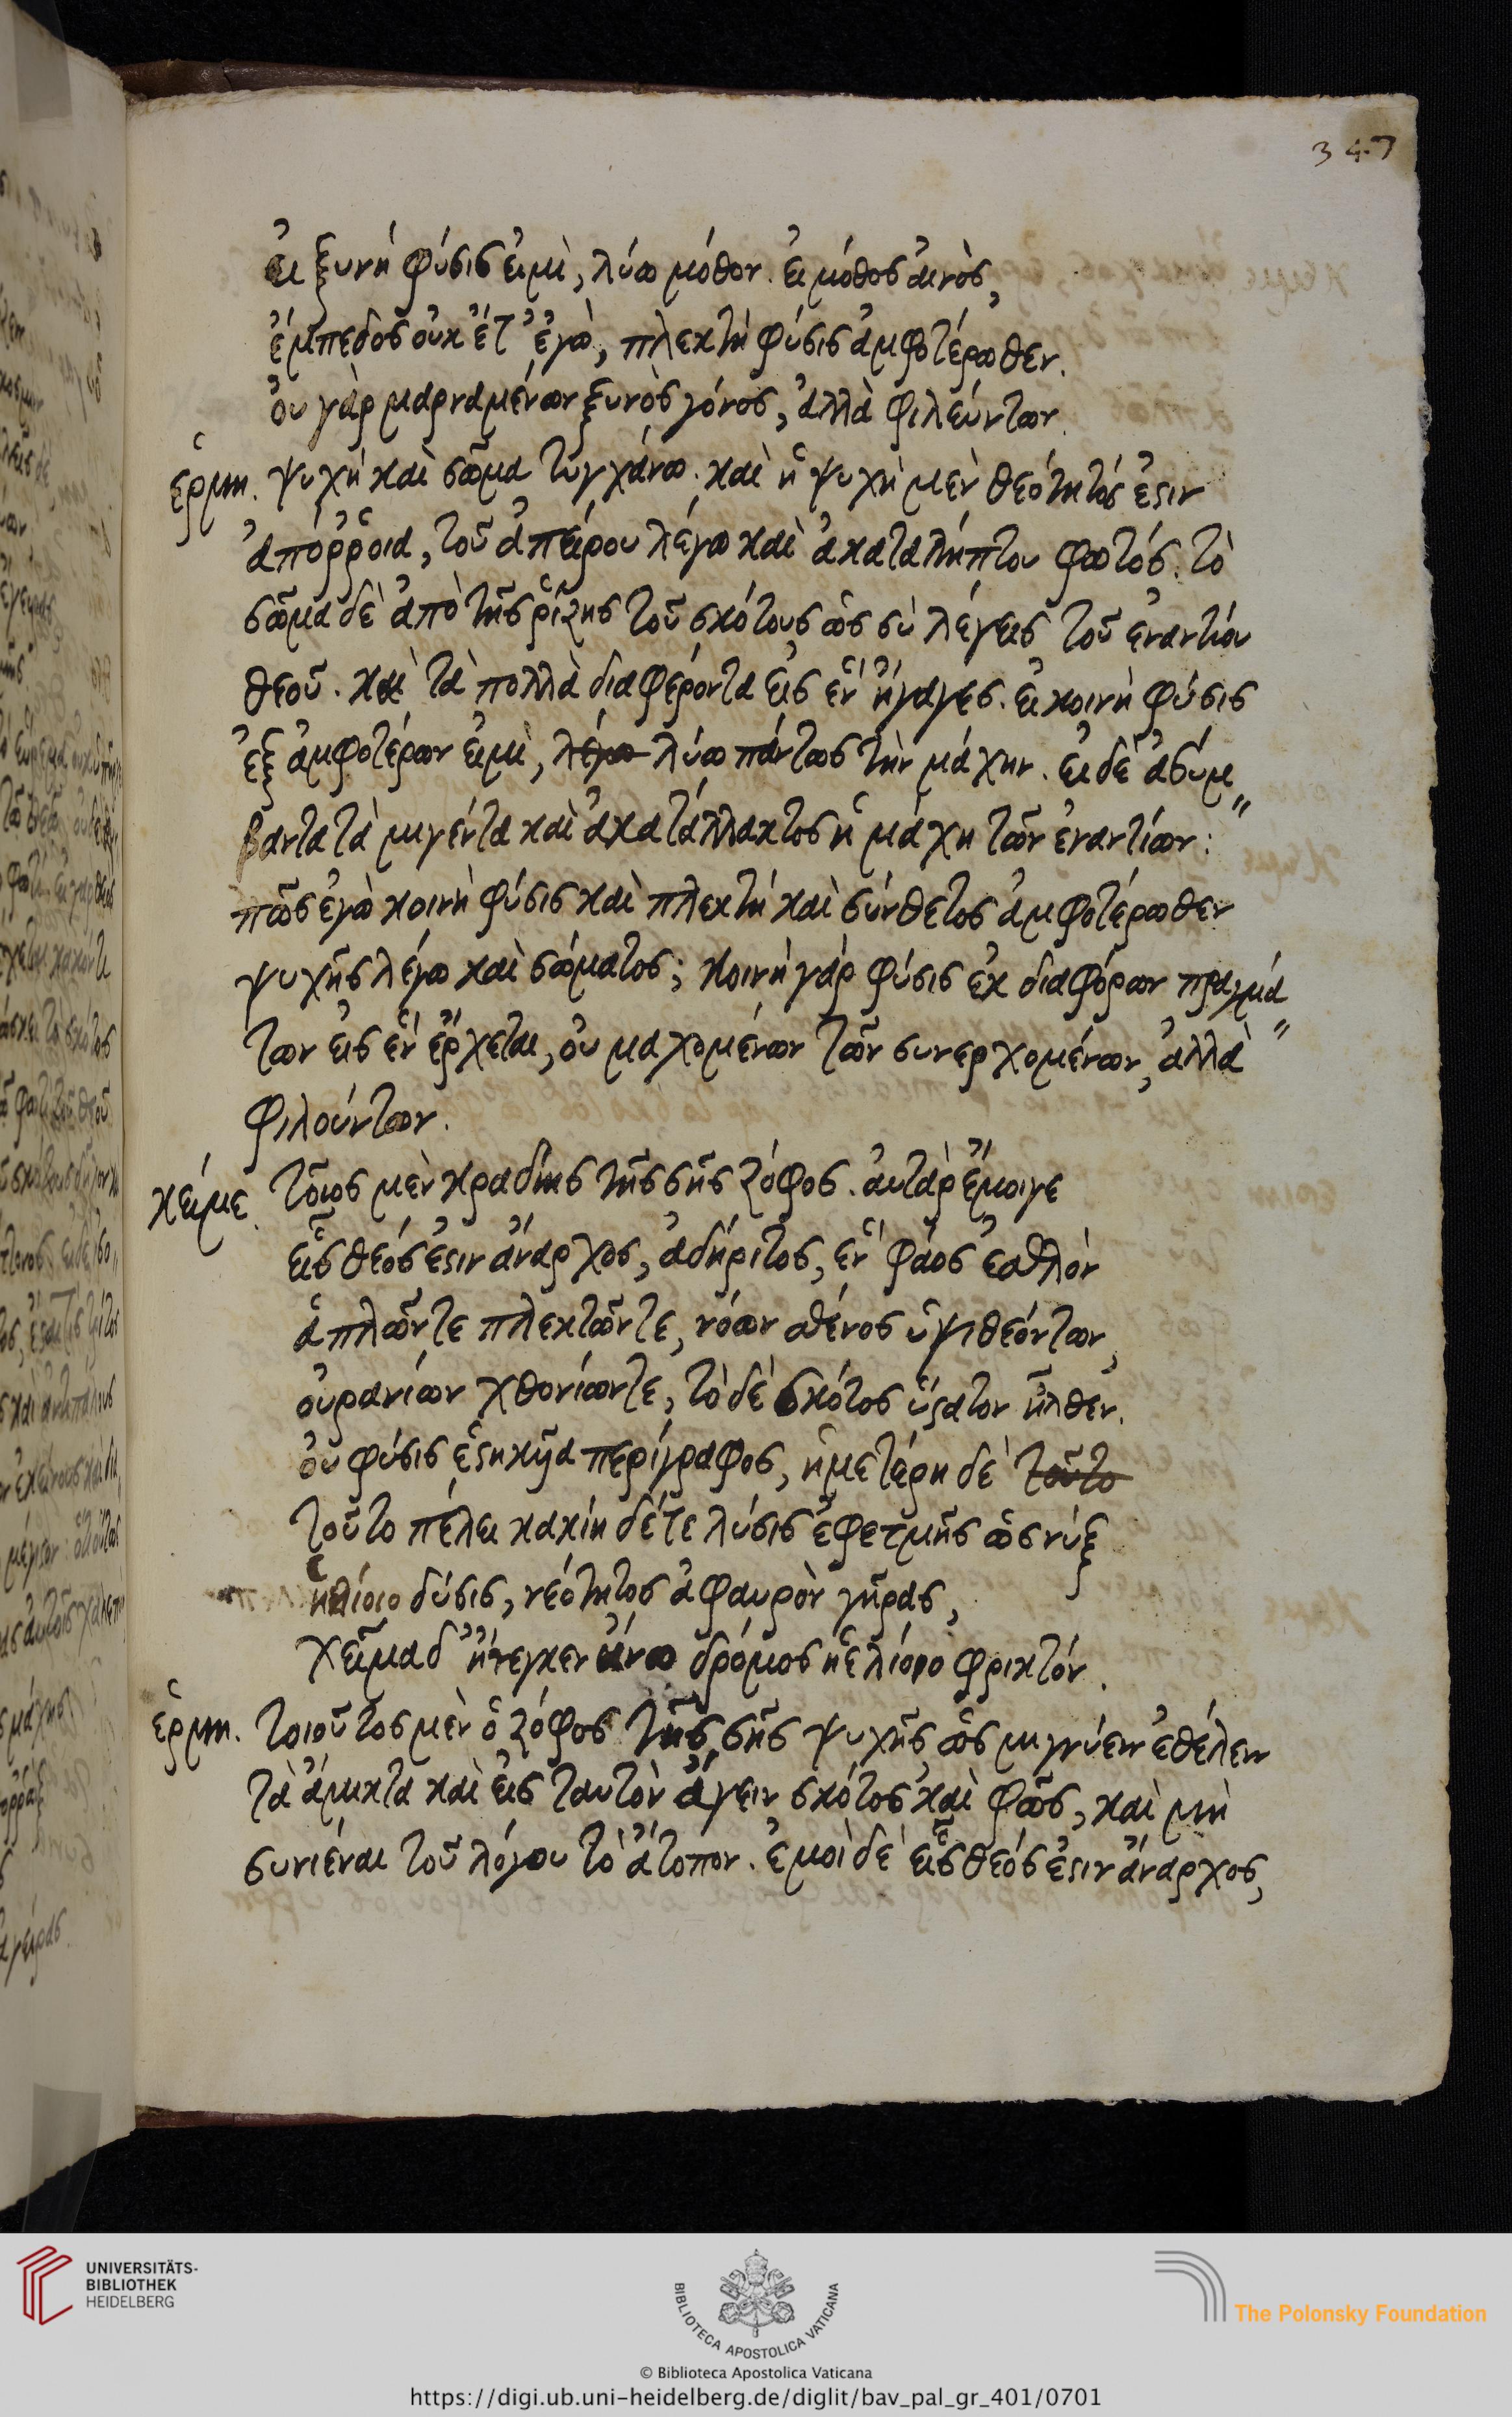 347
εἰ ξυνὴ φύσις εἰμὶ, λύω μόθον. εἰ μόθος αἰνὸς,
ἔμπεδος οὐκ ἔτ' ἐγὼ, πλεκτὴ φύσις ἀμφοτέρωθεν.
οὐ γὰρ μαρναμένων ξυνὸς γόνος, ἀλλὰ φιλεύντων.
ἑρμη. ψυχὴ καὶ σῶμα τυγχάνω. καὶ ἡ ψυχὴ μὲν θεότητός ἐστιν
ἀπόῤῥοια, τοῦ ἀπείρου λέγω καὶ ἀκαταλήπτου φωτός. τὸ
σῶμα δὲ ἀπὸ τῆς ῥίζης τοῦ σκότους ὡς σὺ λέγεις τοῦ ἐναντίου
θεοῦ. καὶ τὰ πολλὰ διαφέροντα εἰς ἓν ἤγαγες. εἰ κοινὴ φύσις
ἐξ ἀμφοτέρων εἰμὶ, λέγω λύω πάντως τὴν μάχην. εἰ δὲ ἀσύμ"
βαντα τὰ μιγέντα καὶ ἀκατάλλακτος ἡ μάχη τῶν ἐναντίων:
πῶς ἐγὼ κοινὴ φύσις καὶ πλεκτὴ καὶ σύνθετος ἀμφοτέρωθεν
ψυχῆς λέγω καὶ σώματος; κοινὴ γάρ φύσις ἐκ διαφόρων πραγμά"
των εἰς ἓν ἔρχεται, οὐ μαχομένων τῶν συνερχομένων, ἀλλὰ
φιλούντων.
κείμε. τοῖος μὲν κραδίης τῆς σῆς ζόφος. αὐτὰρ ἔμοιγε
εἷς θεός ἐστιν ἄναρχος, ἀδήριτος, ἓν φάος ἐσθλὸν
ἁπλῶν τε πλεκτῶν τε, νόων σθένος ὑψιθεόντων,
οὐρανίων χθονίων τε, τὸ δὲ σκότος ὕστατον ἦλθεν.
οὐ φύσις ἑστηκῦα περίγραφος, ἡμετέρη δὲ τοῦτο
τοῦτο πέλει κακίη δέ τε λύσις ἐφετμῆς ὡς νύξ
ἠελίοιο δύσις, νεότητος ἀφαυρὸν γῆρας,
χεῖμα δ' ἤνεγκεν ἄνω δρόμος ἠελίοιο φρικτόν.
ἑρμη. τοιοῦτος μὲν ὁ ζόφος τῆς σῆς ψυχῆς ὡς μιγνύειν ἐθέλειν
τὰ ἄμικτα καὶ εἰς ταυτὸν ἄγειν σκότος καὶ φῶς, καὶ μὴ
συνιέναι τοῦ λόγου τὸ ἄτοπον. ἐμοὶ δὲ εἷς θεός ἐστιν ἄναρχος,
UNIVERSITÄTS-
BIBLIOTHEK
HEIDELBERG
BIBLIOTECA APOSTOLICA VATICANA
The Polonsky Foundation
© Biblioteca Apostolica Vaticana
https://digi.ub.uni-heidelberg.de/diglit/bav_pal_gr_401/0701